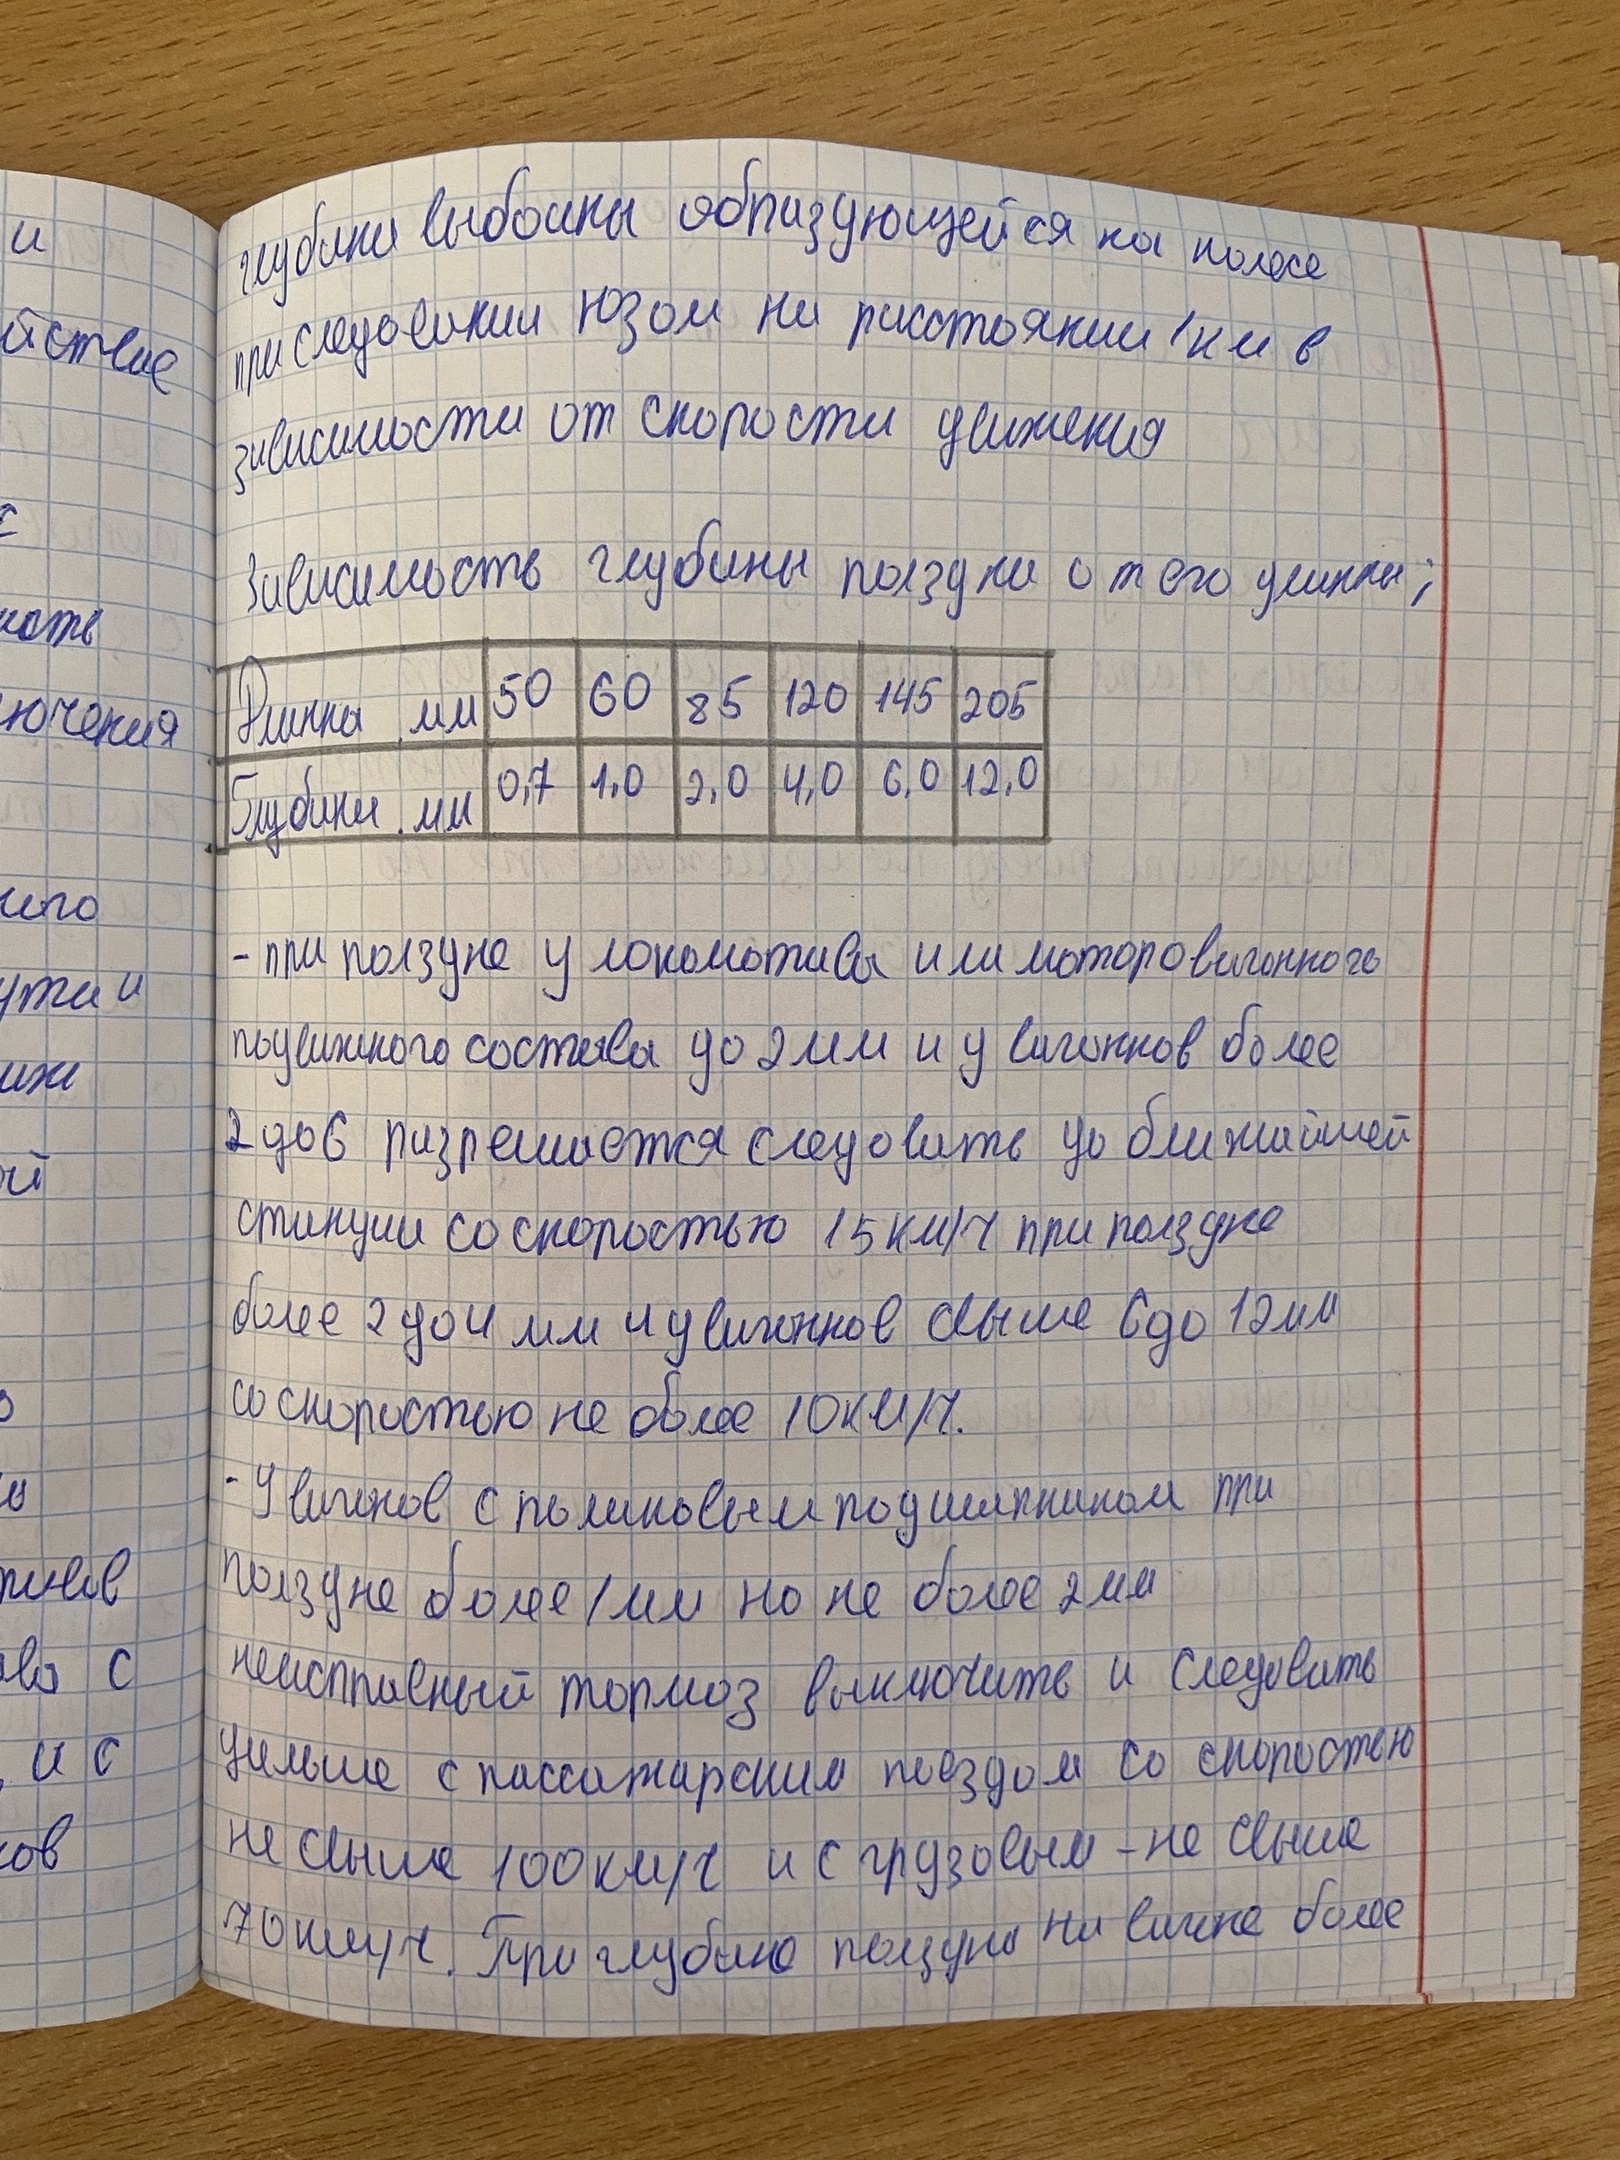 и
йствие
с
ючения
ного
ути и
ой
с
и с
ков
глубина выбоины образующейся на колесе
при следовании юзом на расстоянии 1км в
зависимости от скорости движения
Зависимость глубины ползуна от его длинны;
Длинна мм 50 60 85 120 145 205
Глубина мм 0,7 1,0 2,0 4,0 6,0 12,0
- при ползуне у локомотива или моторовагонного
подвижного состава до 2мм и у вагоннов более
2 до 6 разрешается следовать до ближайшей
станции со скоростью 15км/ч при ползуне
более 2 до 4 мм и у вагоннов свыше 6 до 12мм
со скоростью не более 10км/ч.
- У вагонов с роликовым подшипником при
ползуне более 1мм но не более 2мм
неисправный тормоз выключить и следовать
дальше с пассажарским поездом со скоростью
не свыше 100км/ч и с грузовым - не свыше
70км/ч. При глубине ползуна на вагоне более